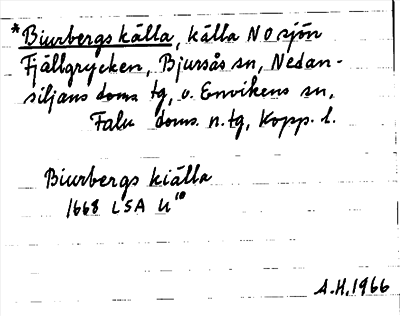 *Biurbergs källa, källa NO sjön
Fjällgrycken, Bjursås sn, Nedan-
siljans doms. tg, o. Envikens sn,
Falu doms. n. tg, Kopp. l.
Biurbergs kiälla
1668 LSA U¹⁰
A.H. 1966